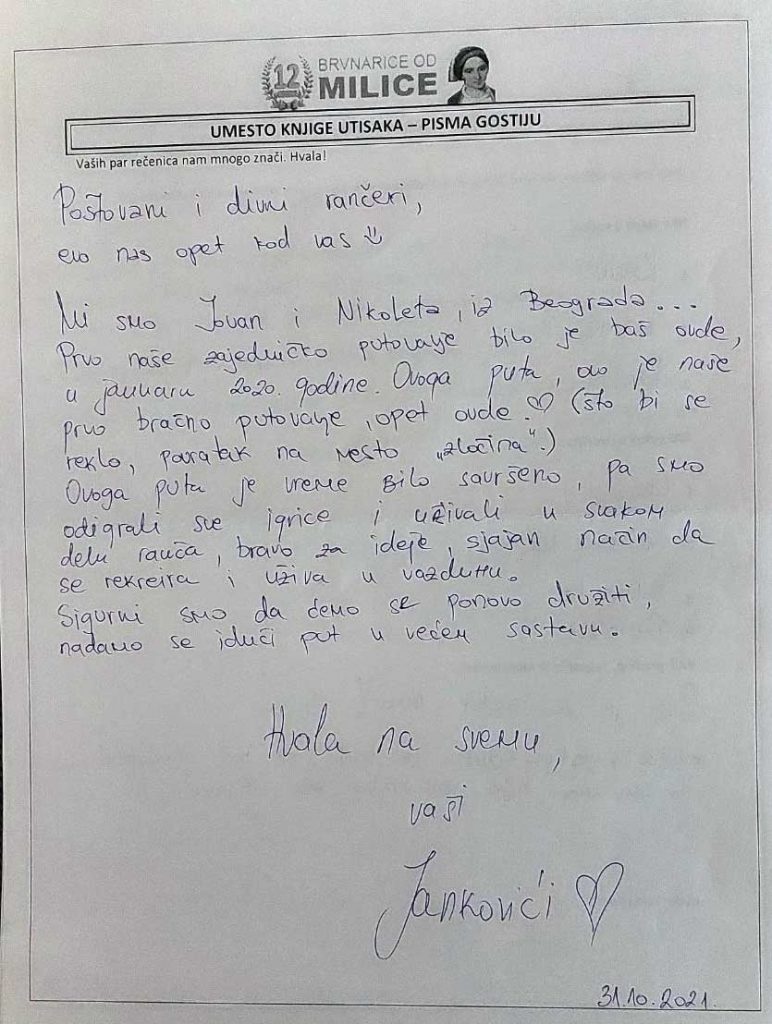 12 BRVNARICE OD
MILICE
UMESTO KNJIGE UTISAKA – PISMA GOSTIJU
Vaših par rečenica nam mnogo znači. Hvala!
Poštovani i divni rančeri,
evo nas opet kod vas
Mi smo Jovan i Nikoleta, iz Beograda...
Prvo naše zajedničko putovanje bilo je baš ovde,
u januaru 2020. godine. Ovoga puta, ovo je naše
prvo bračno putovanje, opet ovde. ♡ (što bi se
reklo, povratak na mesto „zločina“.)
Ovoga puta je vreme bilo savršeno, pa smo
odigrali sve igrice i uživali u svakom
delu ranča, bravo za ideje, sjajan način da
se rekreira i uživa u vazduhu.
Sigurni smo da ćemo se ponovo družiti,
nadamo se idući put u većem sastavu.
Hvala na svemu,
vaši
Jankovići ♡
31.10.2021.